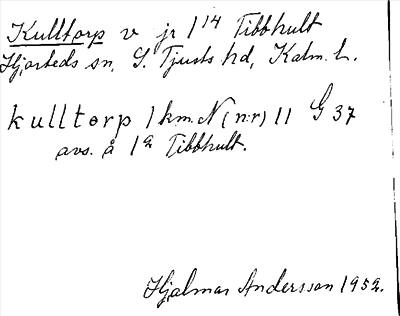 Kulltorp v jr 1¹⁴ Tibbhult
Hjorteds sn. S. Tjusts hd, Kalm. l.
kulltorp 1 km. N (n:r) 11 G 37
avs. å 1ᵃ Tibbhult.
Hjalmar Andersson 1952.